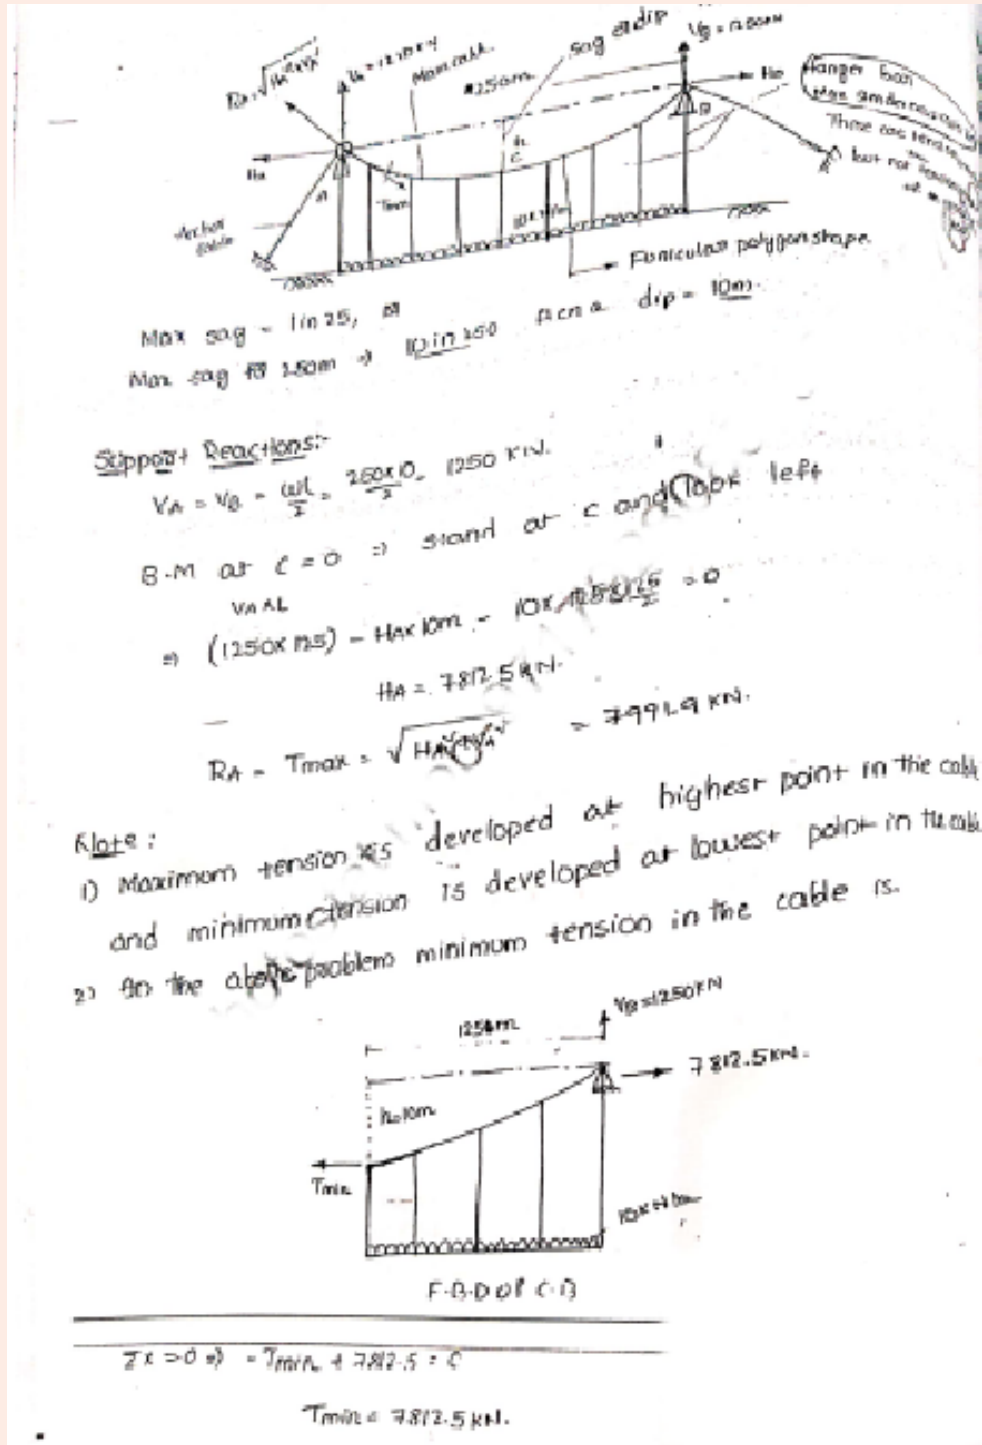 VB = 1250KN
sag or dip
Main cable.
250m
HB
Hanger
HA
A
B
C
Tmin
Anchor
cable
Funicular polygon shape
Max sag = 1 in 25,
Max sag for 250m ⇒ 10 in 250 dip = 10m.
Support Reactions:-
VA = VB = ωl/2 = 250×10/2 = 1250 KN.
B.M at C = 0 ⇒ stand at C and look left
(1250 × 125) - HA × 10m - 10 × 125 × 125/2 = 0
HA = 7812.5 KN.
RA = Tmax = √ = 7991.9 KN.
Note :
1) Maximum tension is developed at highest point in the cable
and minimum tension is developed at lowest point in the cable
2) In the above problem minimum tension in the cable is.
VB = 1250KN
125m
7812.5KN.
h=10m
Tmin
F.B.D of C-B
Σx =0 ⇒ -Tmin + 7812.5 = 0
Tmin = 7812.5 KN.